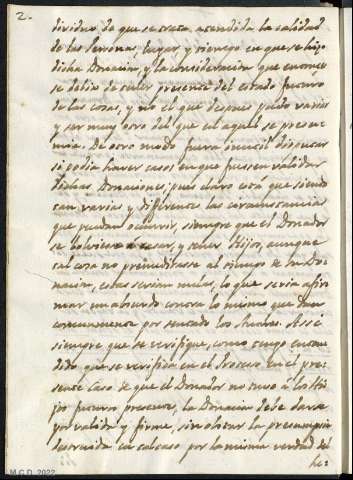 2.
dividuo de que se trata, atendida la calidad
de las Personas, lugar, y tiempo en que se hizo
dicha Donacion, y la consideracion que entonces
se debio de tener presente del estado futuro
de las cosas, y no el que despues pudo variar
y ser muy otro del que en aquel se presu-
mia. De otro modo fuera inutil disputar
si podia haver caso en que fuesen validas
dichas Donaciones, pues claro está que siendo
tan varias y diferentes las circunstancias
que puedan ocurrir, siempre que el Donador
se bolviere a casar, y tener Hijos, aunque
tal cosa no premeditase al tiempo de la Do-
nacion, estas serian nulas, lo que seria afir-
mar un absurdo contra lo mismo que dan
comunmente por sentado los Autores. Asi
siempre que se verifique, como tengo enten-
dido que se verifica en el Proceso en el pre-
sente Caso de que el Donador no tuvo á los Hi-
jos futuros presente, la Donacion debe darse
por valida y firme, sin obstar la presumpcion
destruida en tal caso por la misma verdad del
he=
M.C.D. 2022